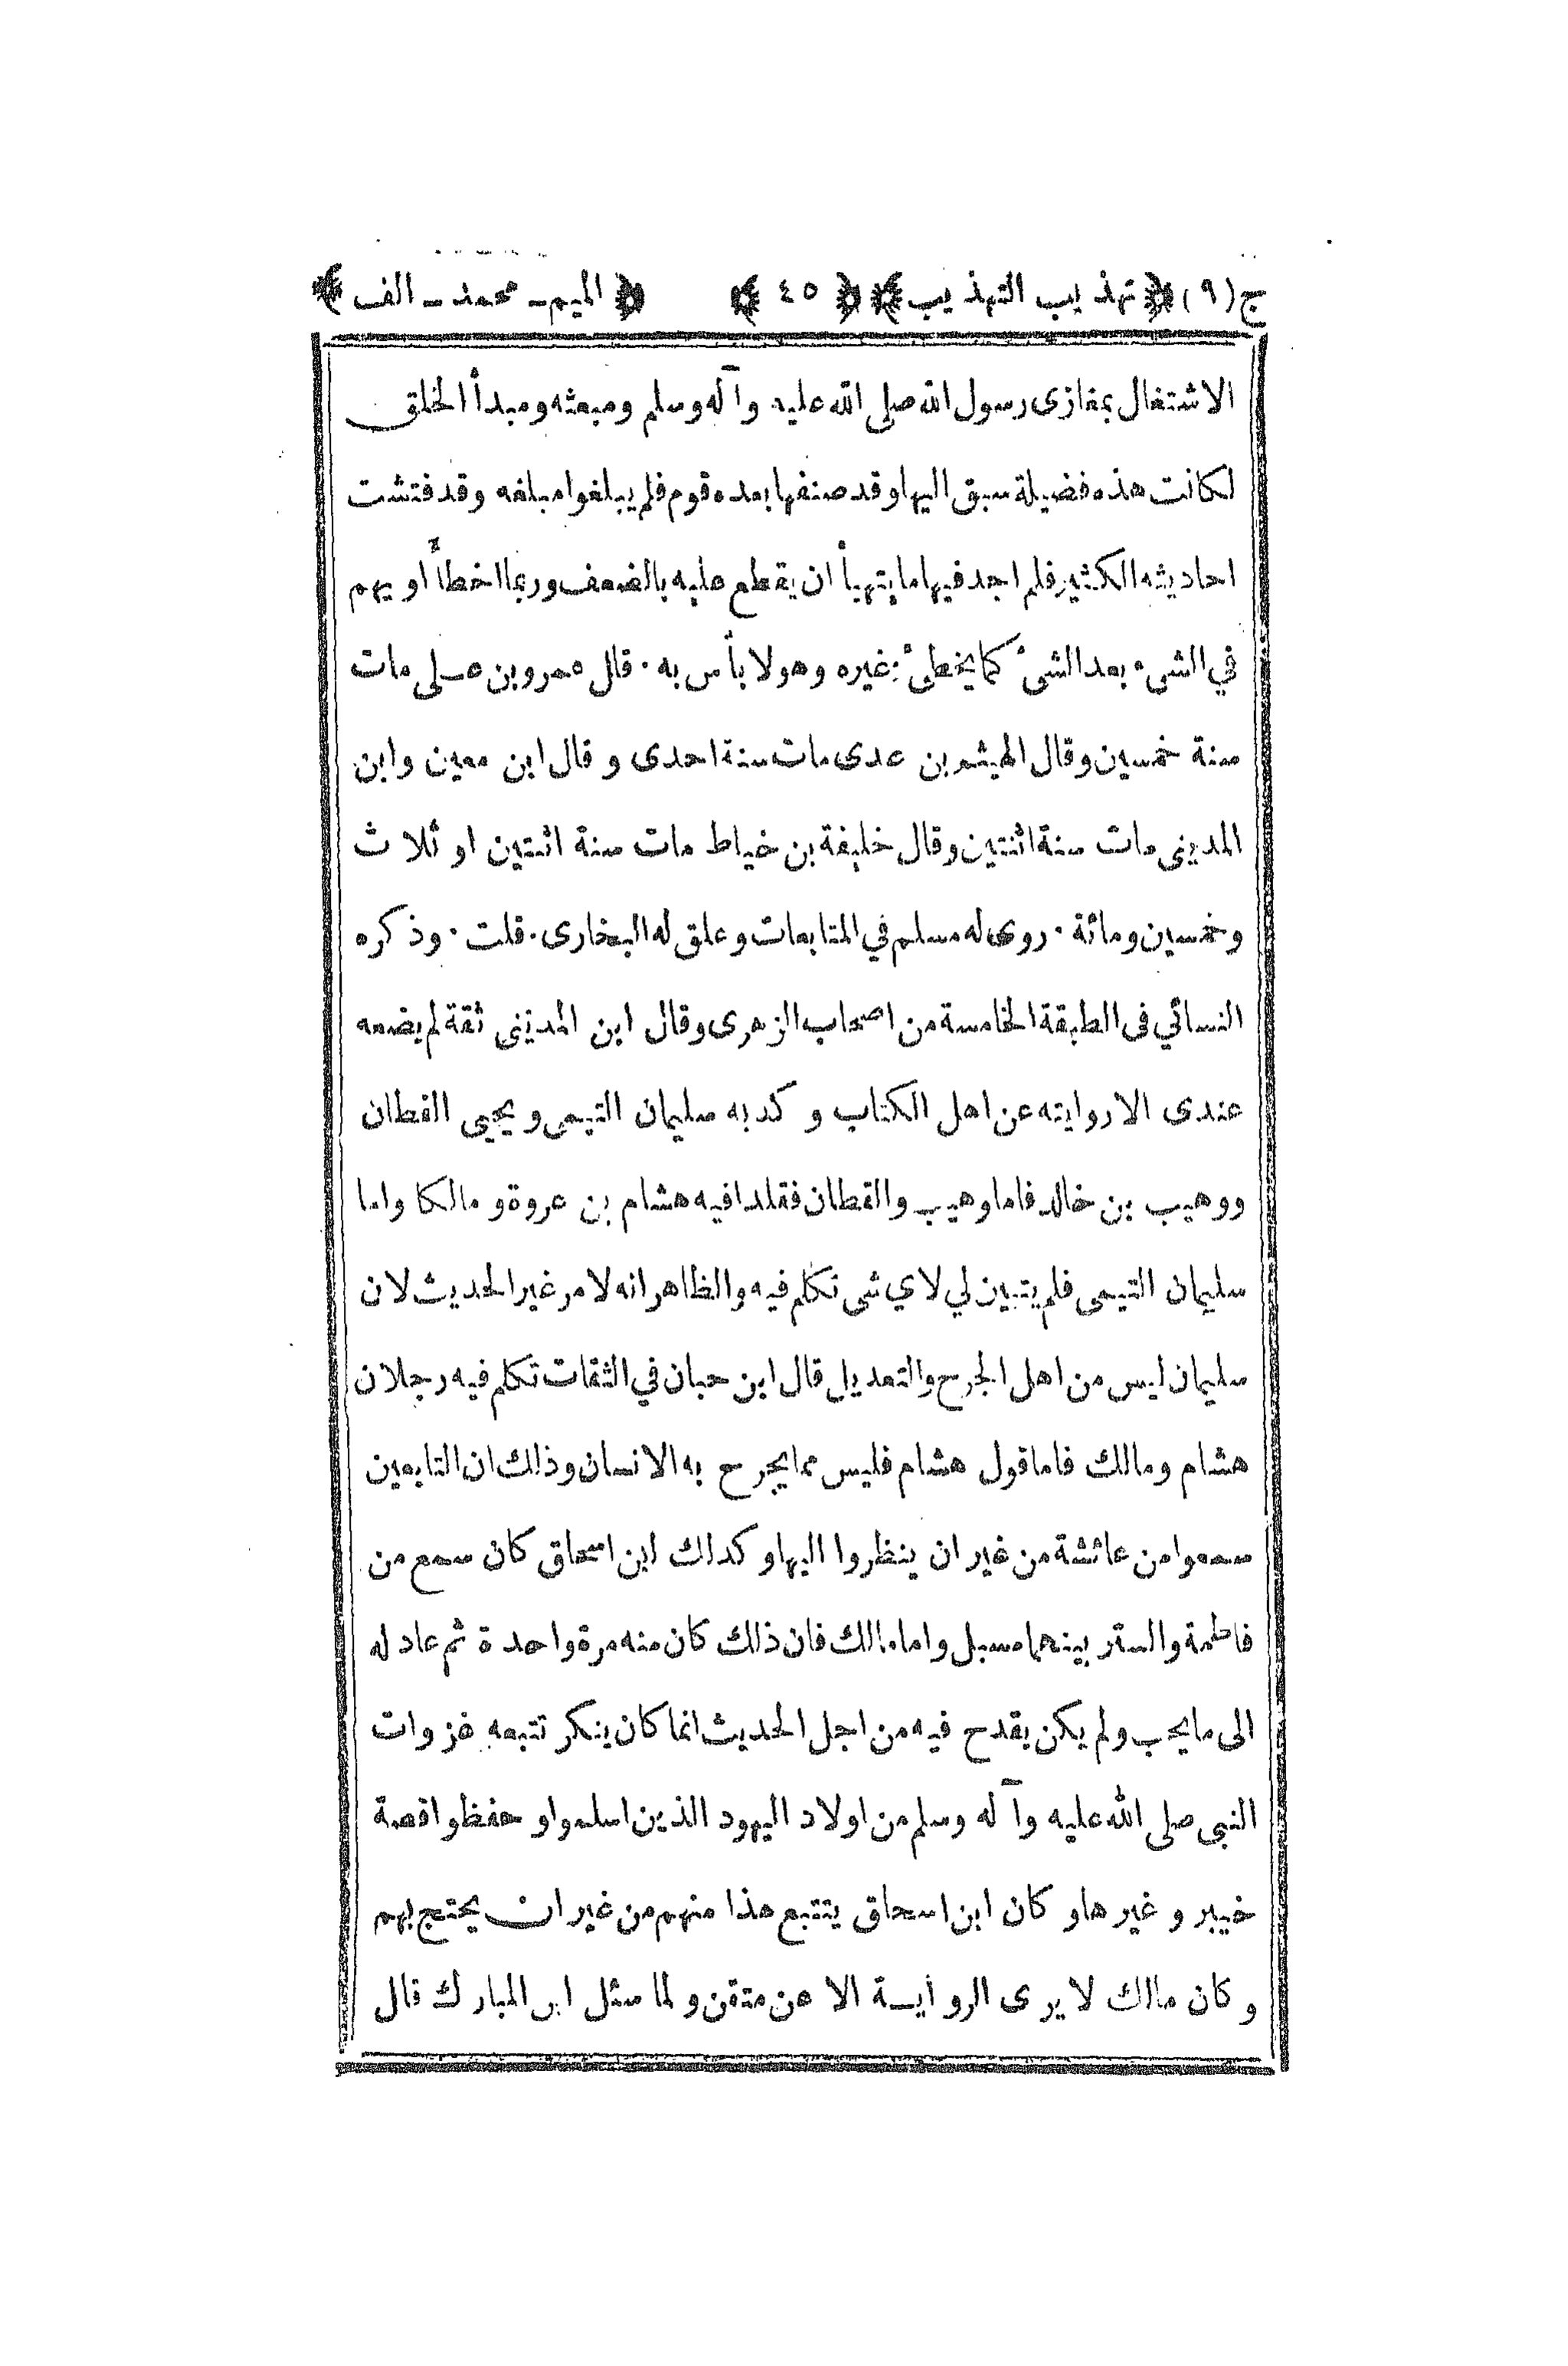 ج (٩) ﴿ تهذيب التهذيب ﴾ ﴿ ٤٥ ﴾ ﴿ الميم - محمد - الف ﴾
الاشتغال بمغازى رسول الله صلى الله عليه وآله وسلم ومبعثه ومبدأ الخلق
لكانت هذه فضيلة سبق اليها وقد صنفها بعده قوم فلم يبلغوا مبلغه وقد فتشت
احاديثه الكثير فلم اجد فيها ما يتهيأ ان يقطع عليه بالضعف وربما اخطأ او يهم
في الشىء بعد الشىء كما يخطئ غيره وهو لا بأس به · قال عمرو بن على مات
سنة خمسين وقال الهيثم بن عدى مات سنة احدى و قال ابن معين وابن
المدينى مات سنة اثنتين وقال خليفة بن خياط مات سنة اثنتين او ثلاث
وخمسين ومائة · روى له مسلم في المتابعات وعلق له البخارى · قلت · وذكره
النسائي فى الطبقة الخامسة من اصحاب الزهرى وقال ابن المدينى ثقة لم يضعه
عندى الا روايته عن اهل الكتاب و كذبه سليمان التيمى ويحيى القطان
ووهيب بن خالد فاما وهيب والقطان فقلدا فيه هشام بن عروة و مالكا واما
سليمان التيمى فلم يتبين لي لاي شى تكلم فيه والظاهر انه لامر غير الحديث لان
سليمان ليس من اهل الجرح والتعديل قال ابن حبان في الثقات تكلم فيه رجلان
هشام ومالك فاما قول هشام فليس مما يجرح به الانسان وذلك ان التابعين
سمعوا من عائشة من غير ان ينظروا اليها و كذلك ابن اسحاق كان سمع من
فاطمة والستر بينهما مسبل واما مالك فان ذلك كان منه مرة واحدة ثم عاد له
الى ما يحب ولم يكن يقدح فيه من اجل الحديث انما كان ينكر تتبعه غزوات
النبى صلى الله عليه وآله وسلم من اولاد اليهود الذين اسلموا و حفظوا قصة
خيبر و غيرها و كان ابن اسحاق يتتبع هذا منهم من غير ان يحتج بهم
و كان مالك لا يرى الرواية الا عن متقن و لما سئل ابن المبارك قال